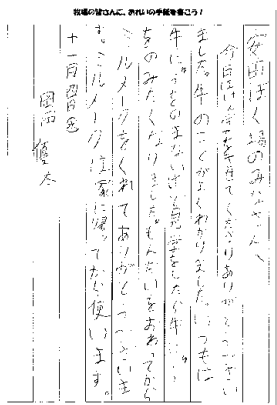 牧場の皆さんに、おれいの手紙を書こう！
ぼく場のみなさんへ
今日はけん学をさせてくださりありがとうござい
ました。牛のことがよくわかりました。いつもは
牛にゅうをのまないけど見学をしたら牛にゅう
をのみたくなりました。もんだいをおわってから
ミルメークをくれてありがとうございま
す。ミルメークは家に帰ってから使います。
十一月四日
岡西